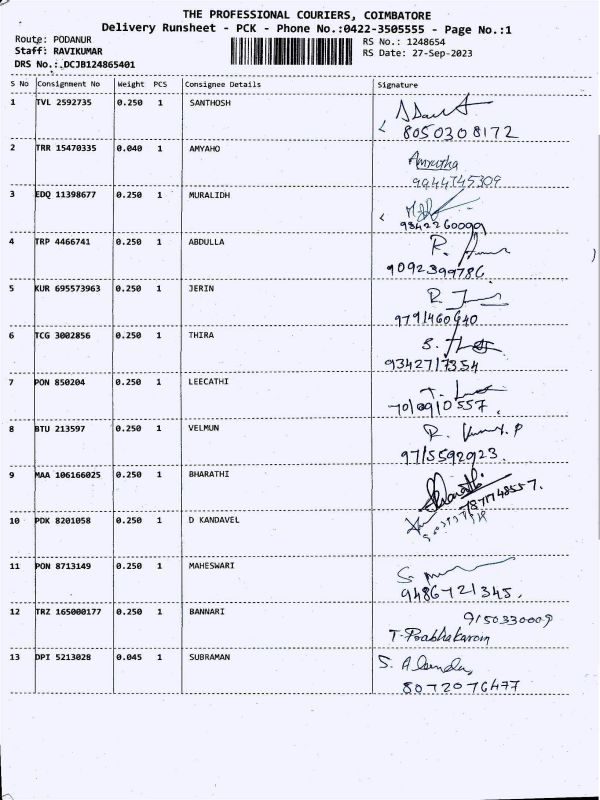 THE PROFESSIONAL COURIERS, COIMBATORE
Delivery Runsheet - PCK - Phone No.:0422-3505555 - Page No.:1
Route: PODANUR
Staff: RAVIKUMAR
DRS No.:.DCJB124865401
RS No.: 1248654
RS Date: 27-Sep-2023
S No Consignment No Weight PCS Consignee Details Signature
1 TVL 2592735 0.250 1 SANTHOSH
8050308172
2 TRR 15470335 0.040 1 AMYAHO
Amrutha
9944745309
3 EDQ 11398677 0.250 1 MURALIDH
9342260099
4 TRP 4466741 0.250 1 ABDULLA
R.
9092399786.
5 KUR 695573963 0.250 1 JERIN
R.
9791460940
6 TCG 3002856 0.250 1 THIRA
S.
9342717354
7 PON 850204 0.250 1 LEECATHI
T.
7010910557.
8 BTU 213597 0.250 1 VELMUN
R. P
9715592923.
9 MAA 106166025 0.250 1 BHARATHI
Bharathi
10 PDK 8201058 0.250 1 D KANDAVEL
11 PON 8713149 0.250 1 MAHESWARI
S.
9486721345.
12 TRZ 165000177 0.250 1 BANNARI
9150330009
T. Prabhakaran
13 DPI 5213028 0.045 1 SUBRAMAN
S.
8072076477